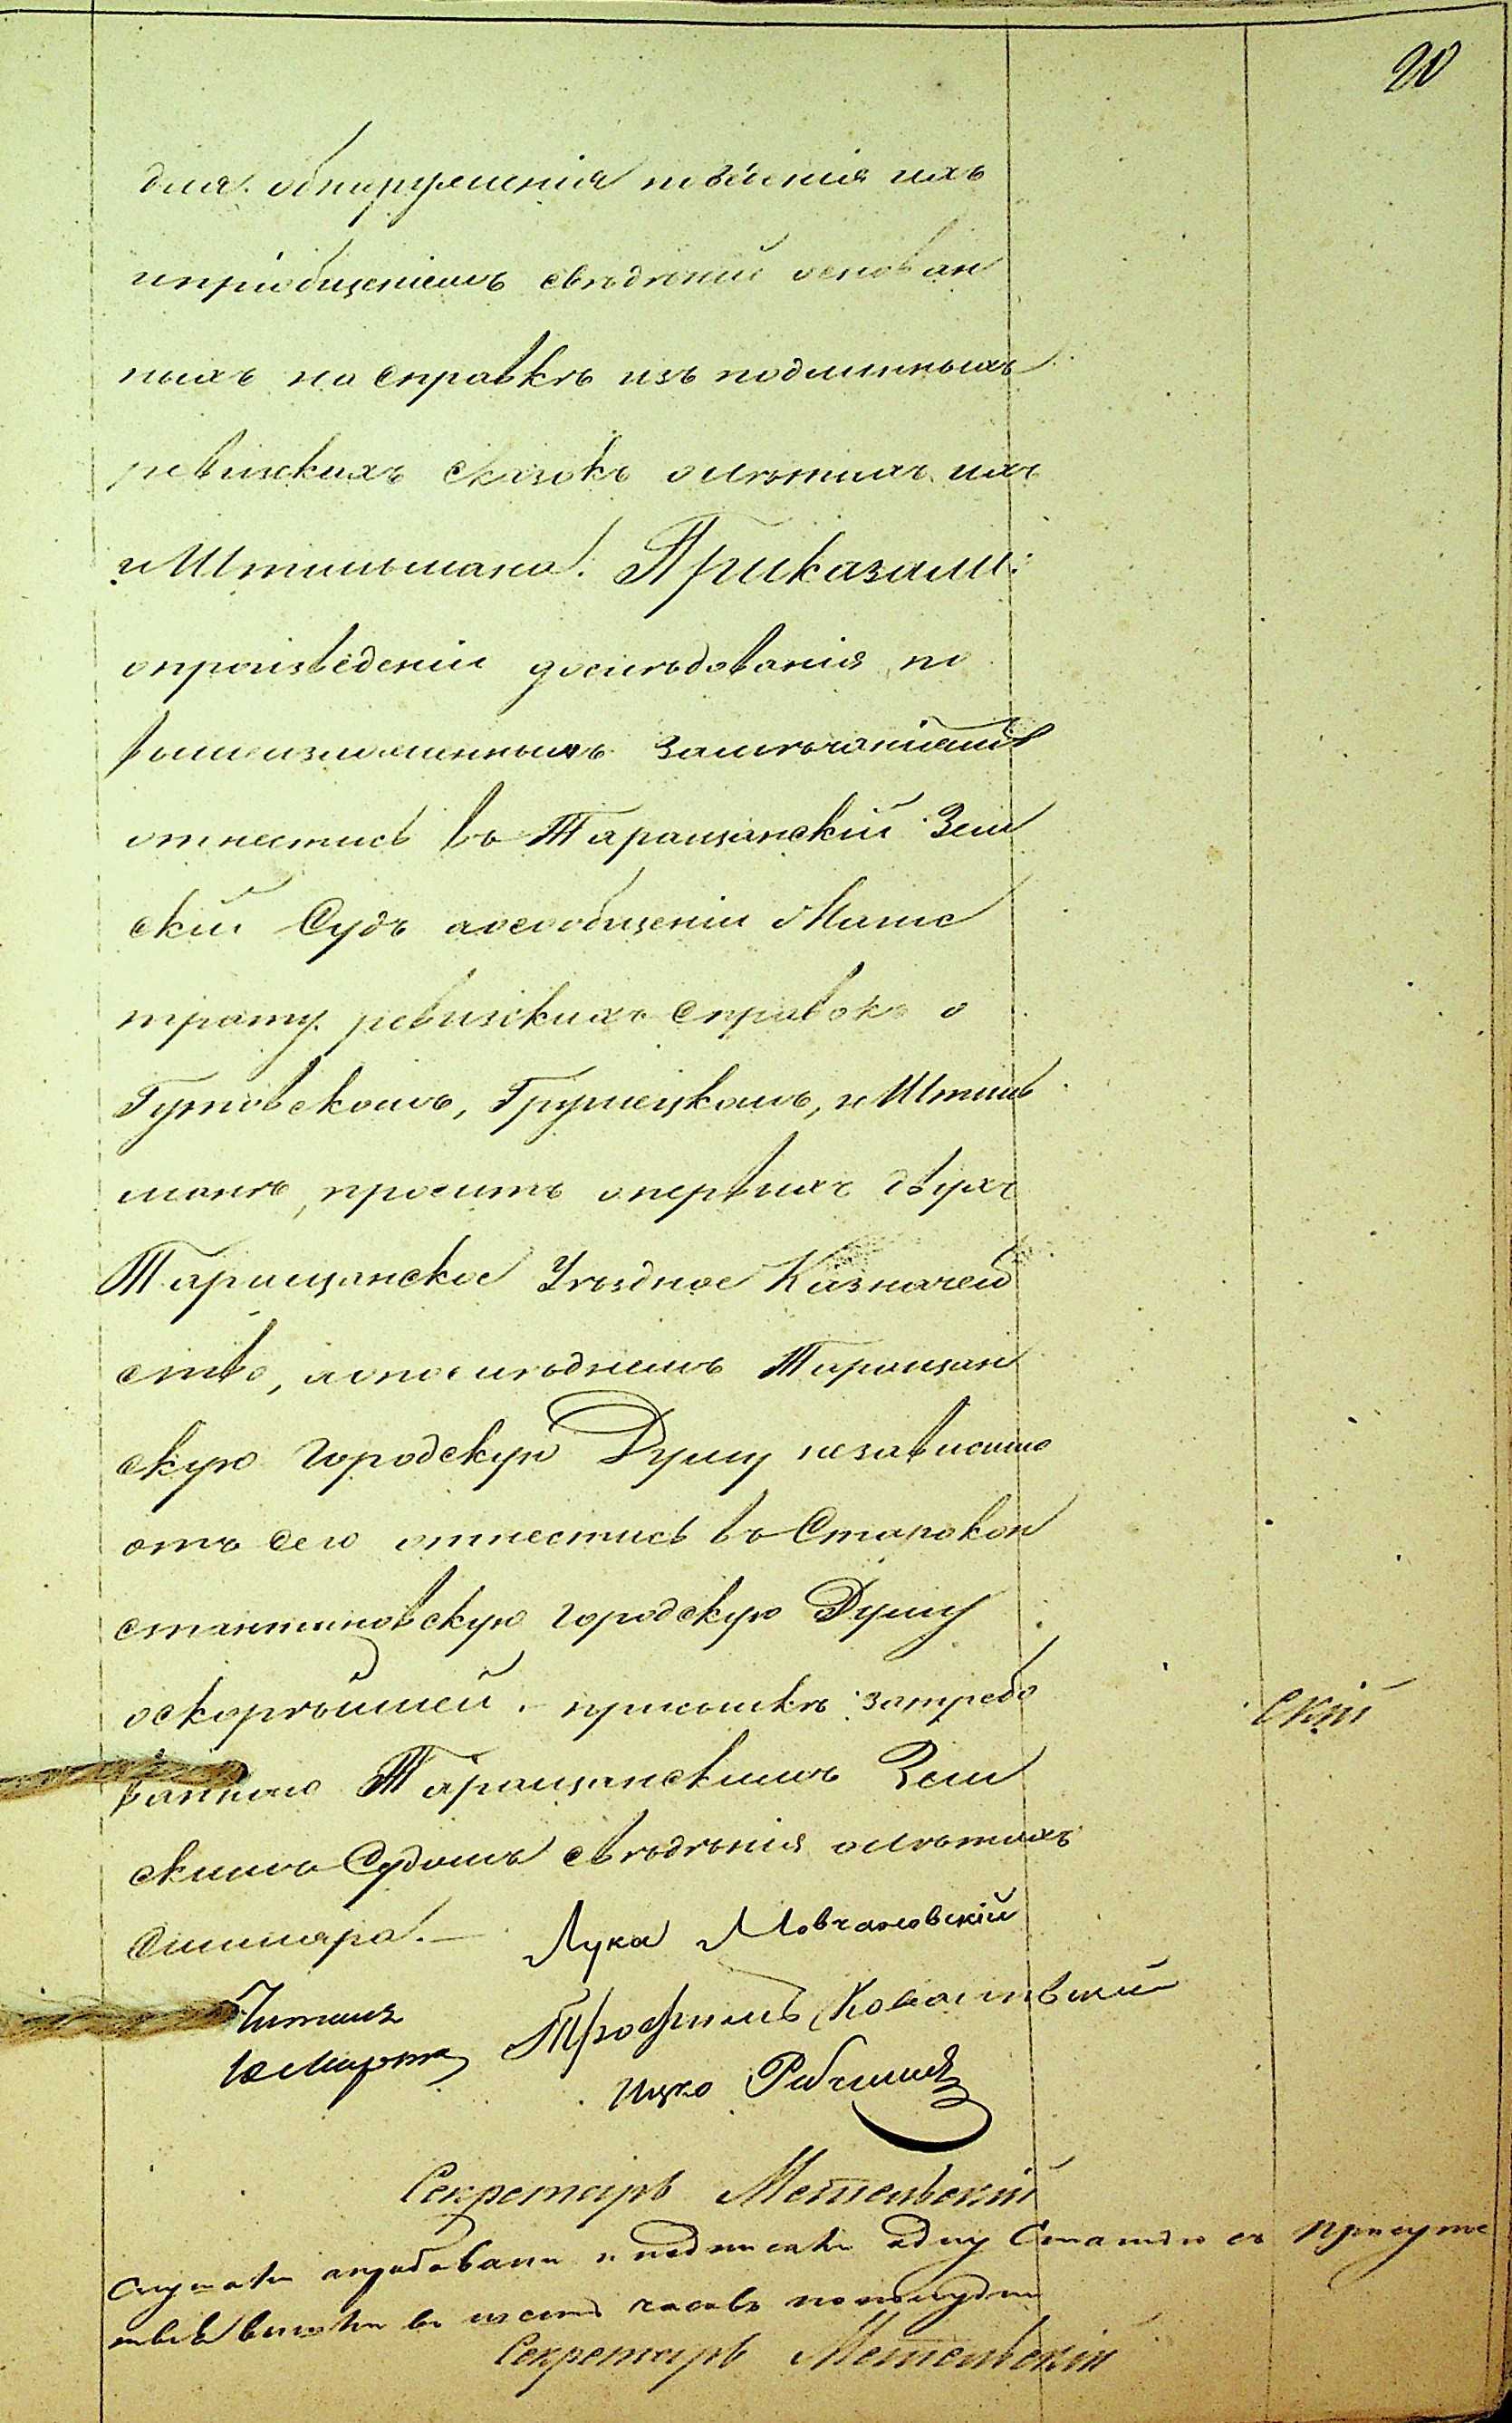 20
для обнаруженія поведенія ихъ
ипріобщеніемъ свѣдѣній основан
ныхъ на справкѣ изъ подлинныхъ
ревизскихъ сказокъ олѣтахъ ихъ
и Штильмана. Приказали:
опроизведеніи дослѣдованія по
вышеизложеннымъ замѣчаніямъ
отнестись въ Таращанскій Зем
скій Судъ аосообщеніи Магис
трату ревизскихъ справокъ о
Гутовскомъ, Грушецкомъ, и Штиль
манѣ, просить опервыхъ двухъ
Таращанское Уѣздное Казначей
ство, аопослѣднемъ Таращан
скую городскую Думу независимо
отъ сего отнестись въ Старокон
стантиновскую городскую Думу
оскорѣйшей присылкѣ затребо
ваннаго Таращанскимъ Зем
скимъ Судомъ свѣдѣнія олѣтахъ
скій
Лука Мовчановскій
Читалъ
Трофимъ
Ицко
Секретарь Метельскій
Слушали и подписали одну Статью съ присутс
вышли въ часовъ пополудни
Секретарь Метельскій